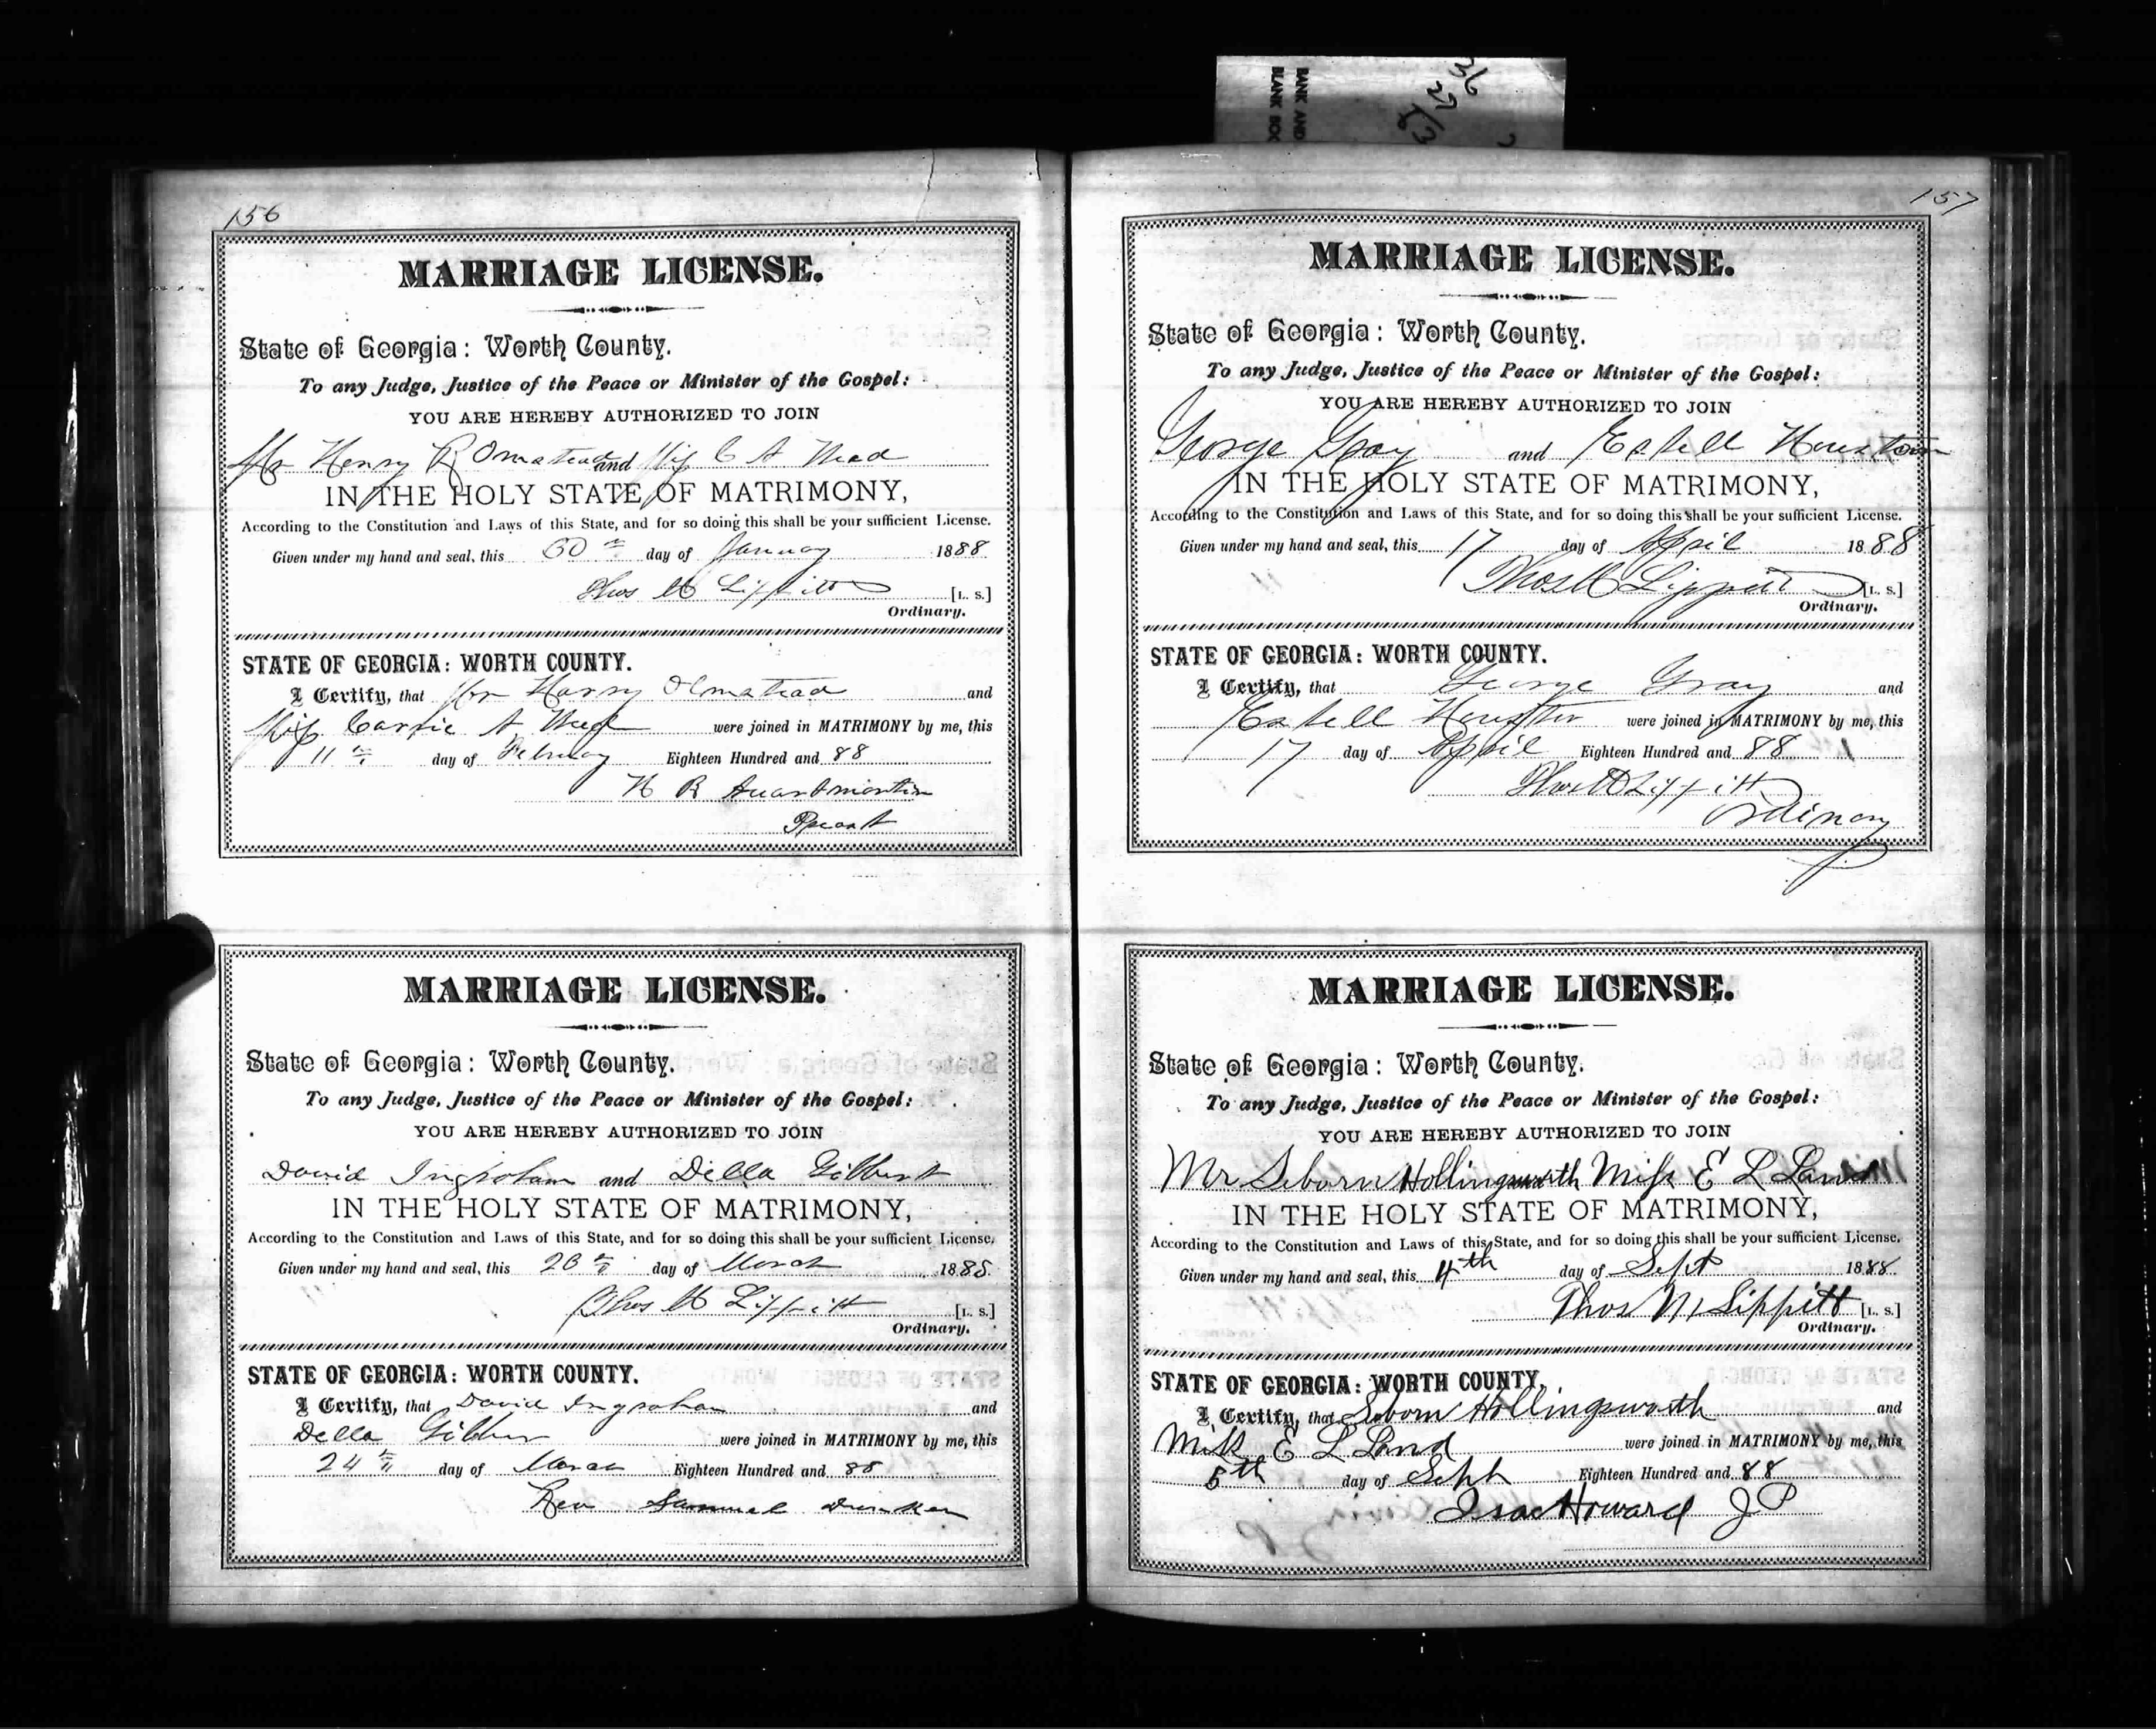 BANK AND
BLANK BOO
36
156
MARRIAGE LICENSE.
State of Georgia: Worth County.
To any Judge, Justice of the Peace or Minister of the Gospel:
YOU ARE HEREBY AUTHORIZED TO JOIN
Mr Henry R Omstead and Miss C A
IN THE HOLY STATE OF MATRIMONY,
According to the Constitution and Laws of this State, and for so doing this shall be your sufficient License.
Given under my hand and seal, this 30th day of January 1888
Thos M Lippitt [L. S.]
Ordinary.
STATE OF GEORGIA: WORTH COUNTY.
I Certify, that Mr Harry Olmstead and
Miss Carrie A were joined in MATRIMONY by me, this
11th day of February Eighteen Hundred and 88
H R
MARRIAGE LICENSE.
State of Georgia: Worth County.
To any Judge, Justice of the Peace or Minister of the Gospel:
YOU ARE HEREBY AUTHORIZED TO JOIN
David Ingraham and Della Gilbert
IN THE HOLY STATE OF MATRIMONY,
According to the Constitution and Laws of this State, and for so doing this shall be your sufficient License.
Given under my hand and seal, this day of March 1888
Thos M Lippitt [L. S.]
Ordinary.
STATE OF GEORGIA: WORTH COUNTY.
I Certify, that David Ingraham and
Della were joined in MATRIMONY by me, this
24th day of March Eighteen Hundred and 88
Rev Samuel
157
MARRIAGE LICENSE.
State of Georgia: Worth County.
To any Judge, Justice of the Peace or Minister of the Gospel:
YOU ARE HEREBY AUTHORIZED TO JOIN
George Gray and Estell Houston
IN THE HOLY STATE OF MATRIMONY,
According to the Constitution and Laws of this State, and for so doing this shall be your sufficient License.
Given under my hand and seal, this 17 day of April 1888
Thos M Lippitt [L. S.]
Ordinary.
STATE OF GEORGIA: WORTH COUNTY.
I Certify, that George Gray and
Estell Houston were joined in MATRIMONY by me, this
17 day of April Eighteen Hundred and 88
Thos M Lippitt
Ordinary
MARRIAGE LICENSE.
State of Georgia: Worth County.
To any Judge, Justice of the Peace or Minister of the Gospel:
YOU ARE HEREBY AUTHORIZED TO JOIN
Mr Seborn Hollingsworth Miss E L Land
IN THE HOLY STATE OF MATRIMONY,
According to the Constitution and Laws of this State, and for so doing this shall be your sufficient License.
Given under my hand and seal, this 4th day of Sept 1888
Thos M Lippitt [L. S.]
Ordinary.
STATE OF GEORGIA: WORTH COUNTY.
I Certify, that Seborn Hollingsworth and
Miss E L Land were joined in MATRIMONY by me, this
5th day of Sept Eighteen Hundred and 88
Isac Howard J P